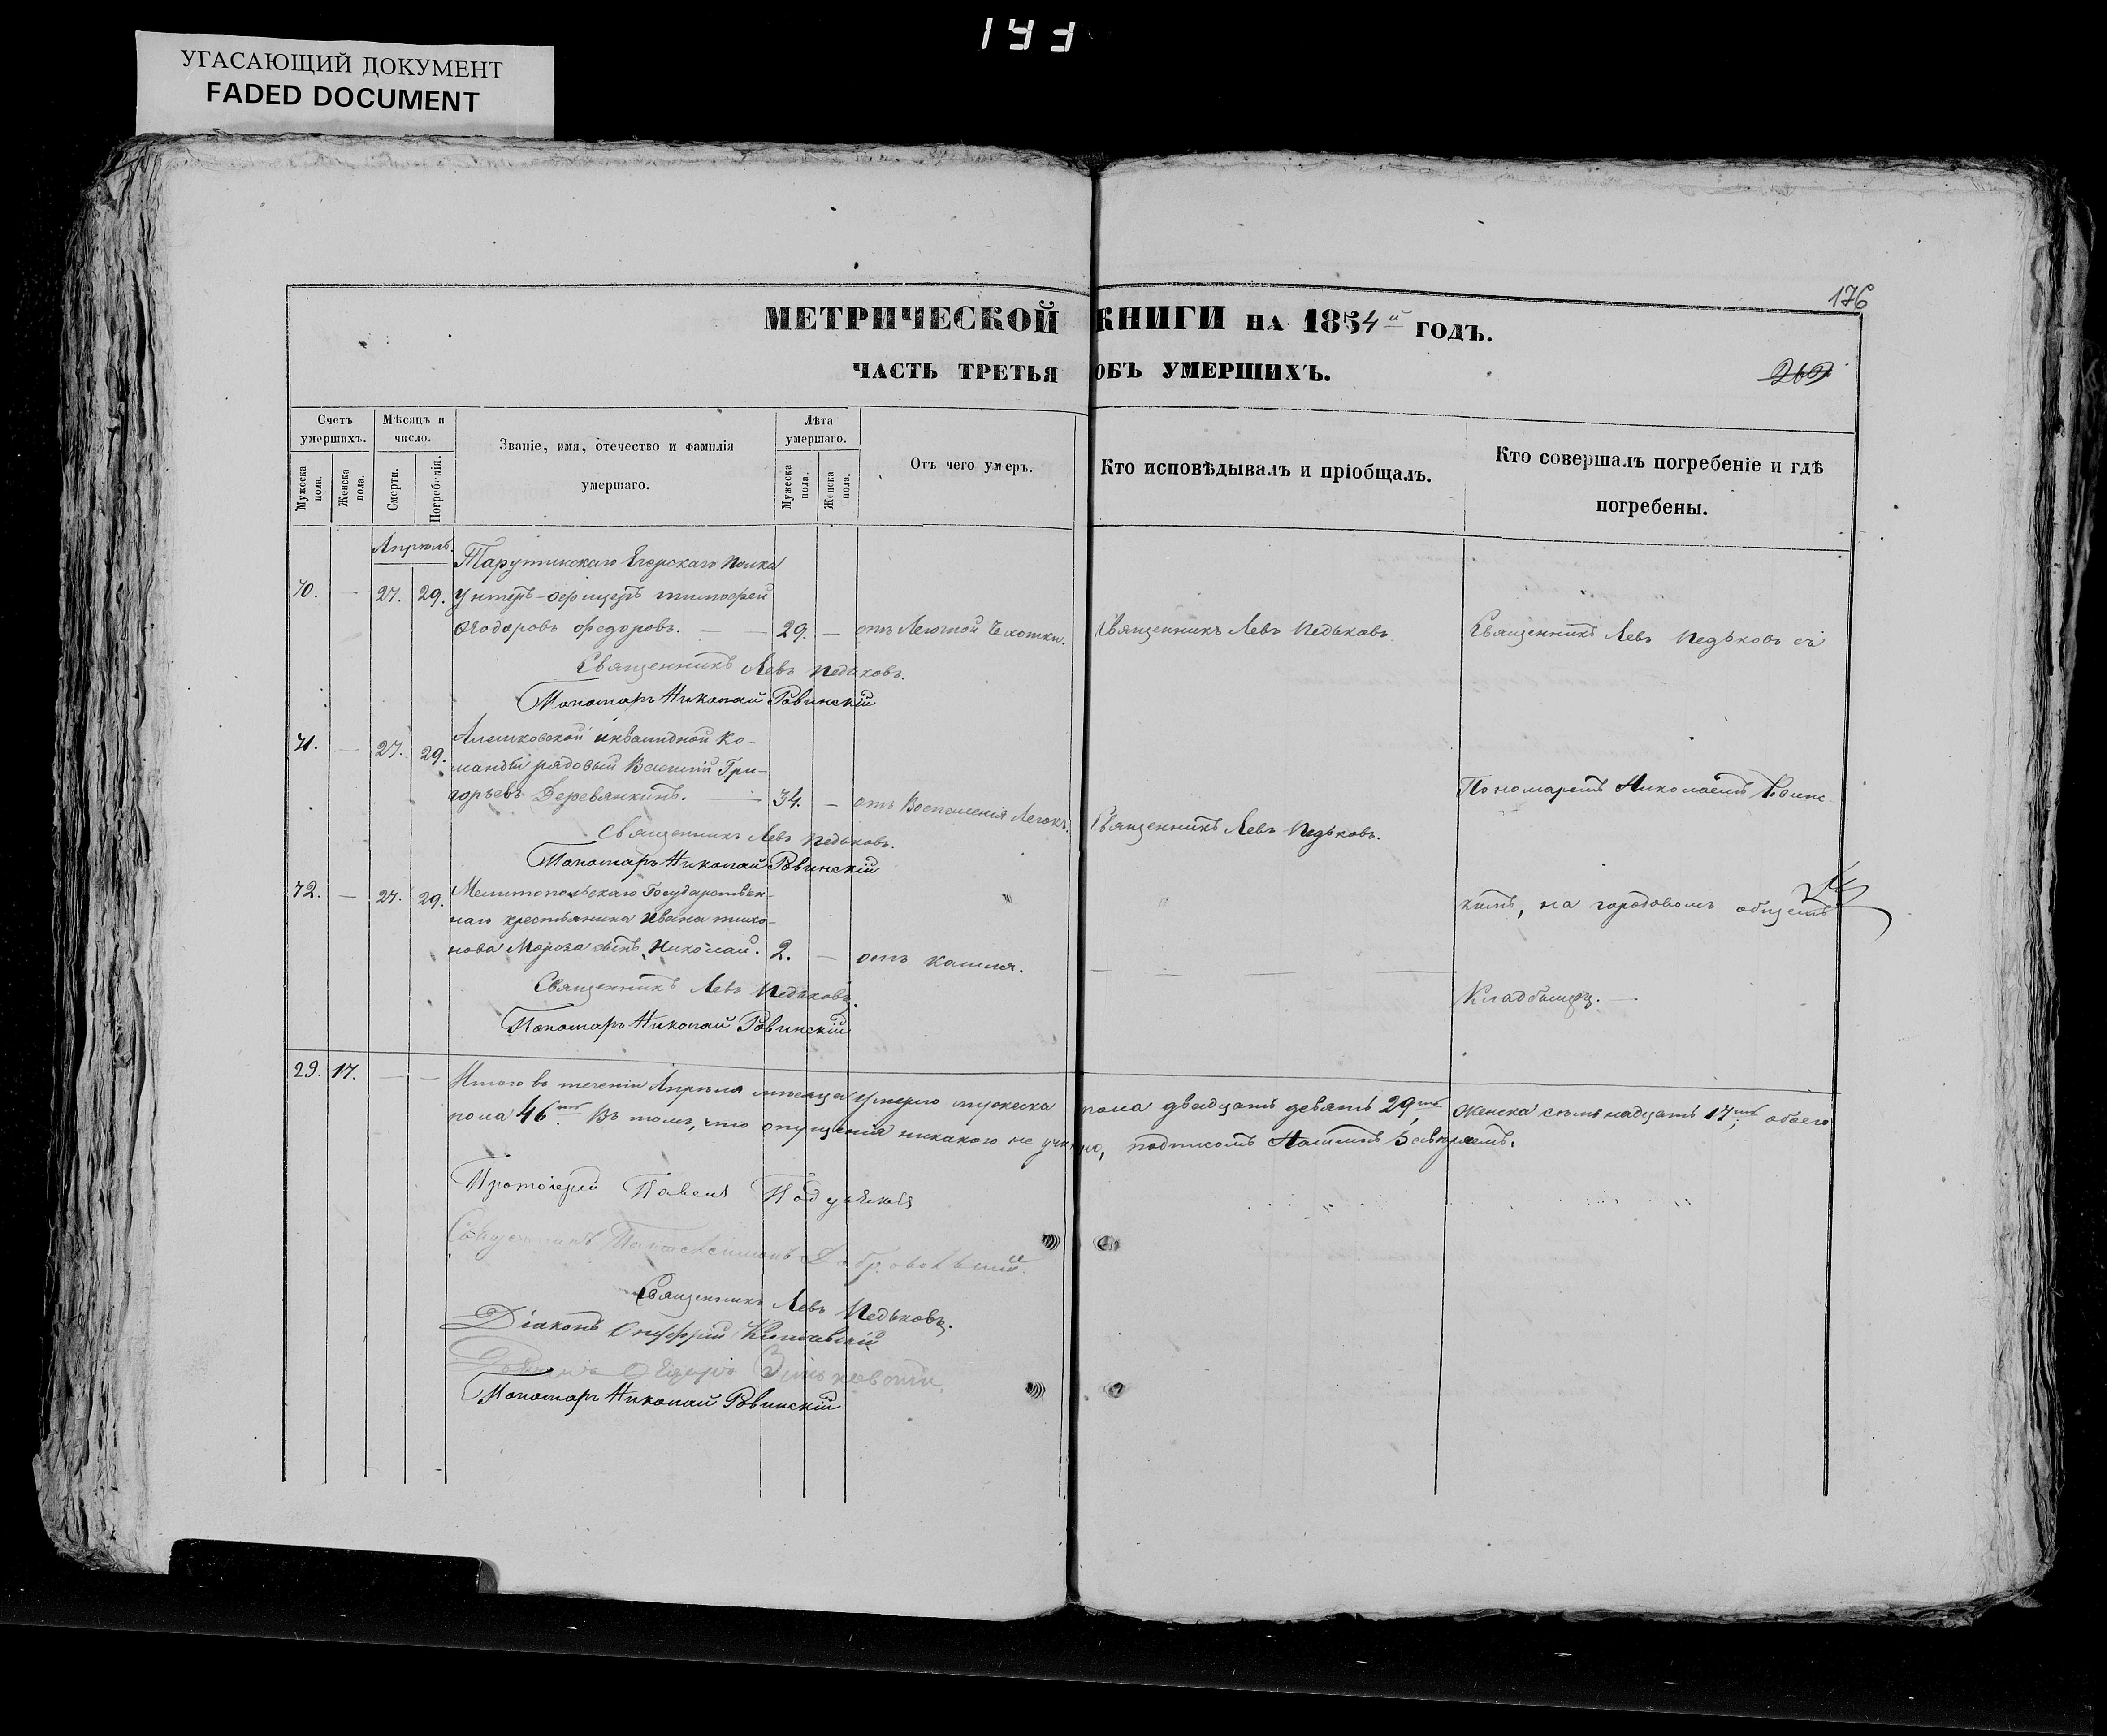 143
УГАСАЮЩИЙ ДОКУМЕНТ
FADED DOCUMENT
176
МЕТРИЧЕСКОЙ КНИГИ НА 1854й ГОДЪ.
ЧАСТЬ ТРЕТЬЯ ОБЪ УМЕРШИХЪ.
Счетъ умершихъ.
Мужеска пола.
Женска пола.
Мѣсяцъ и число.
Смерти.
Погребенія.
Званіе, имя, отечество и фамилія
умершаго.
Лѣта умершаго.
Мужеска пола.
Женска пола.
Отъ чего умеръ.
Кто исповѣдывалъ и пріобщалъ.
Кто совершалъ погребеніе и гдѣ
погребены.
Апрѣль.
Тарутинскаго Егерскаго Полка
70. — 27. 29. Унтеръ-офицеръ тимофей
Ѳеодоровъ федоровъ. — — 29. — отъ Легочной Чехотки. Священникъ Левъ Педьковъ Священникъ Левъ Педьковъ съ
Священникъ Левъ Педьковъ.
Пономарь Николай Ровинскій
71. — 27. 29. Алешковской инвалидной Ко-
манды рядовый Василій Гри-
горьевъ Деревянкинъ. — 34. — отъ Воспаленія Легокъ. Священникъ Левъ Педьковъ. Пономаремъ Николаемъ Ровинс
Священникъ Левъ Педьковъ.
Пономарь Николай Ровинскій
72. — 27. 29. Мелитопольскаго Государствен-
наго крестьянина Ивана тихо-
нова Мороза сынъ Николай. 2. — отъ кашля. — — — —
кимъ, на городовомъ общемъ
Священникъ Левъ Педьковъ.
Кладбищѣ. —
Пономарь Николай Ровинскій
29. 17. — — Итого въ теченіи Апрѣля мѣсяца умерло мужеска пола двадцать девять 29ть, женска семьнадцать 17ть, обоего
пола 46ть. Въ томъ, что опущенія никакого не учинено, подписомъ Нашимъ Завѣряемъ.
Протоіерей Павелъ
Священникъ Добровольскій
Священникъ Левъ Педьковъ.
Діаконъ Онуфрій
Пономарь Николай Ровинскій